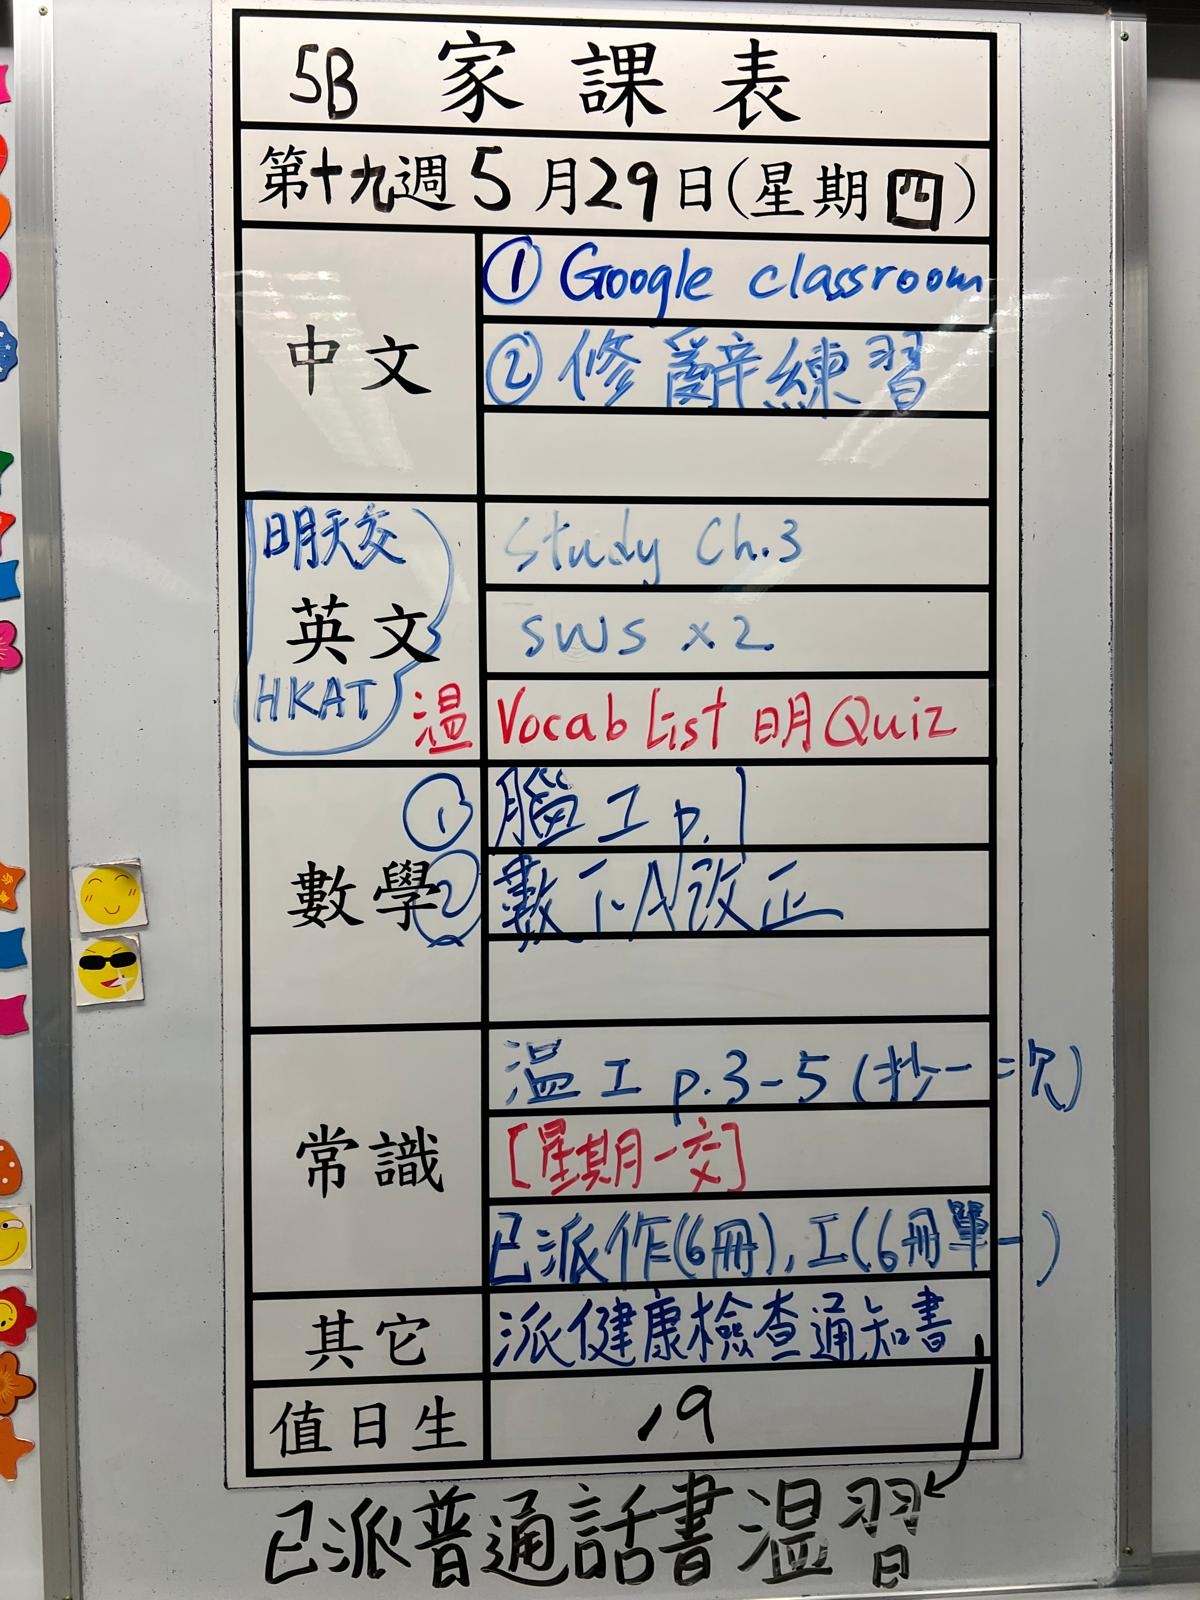 5B 家課表
第十九週 5月29日(星期四)
中文
① Google classroom
② 修辭練習
明天交
英文
HKAT
Study Ch.3
SWS x2
溫 Vocab List 明 Quiz
數學
① 腦工 p.1
② 數下A改正
常識
溫工 p.3-5 (抄一次)
[星期一交]
已派作(6冊), 工(6冊單一)
其它
派健康檢查通知書
值日生
19
已派普通話書溫習